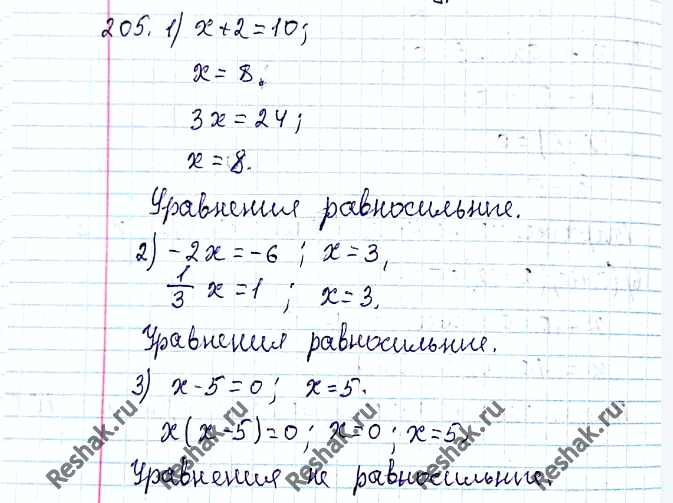 205. 1) x+2=10;
x=8.
3x=24;
x=8.
Уравнения равносильные.
2) -2x=-6; x=3,
1/3 x=1; x=3.
Уравнения равносильные.
3) x-5=0; x=5.
x(x-5)=0; x=0; x=5
Уравнения не равносильные.
Reshak.ru Reshak.ru Reshak.ru Reshak.ru Reshak.ru